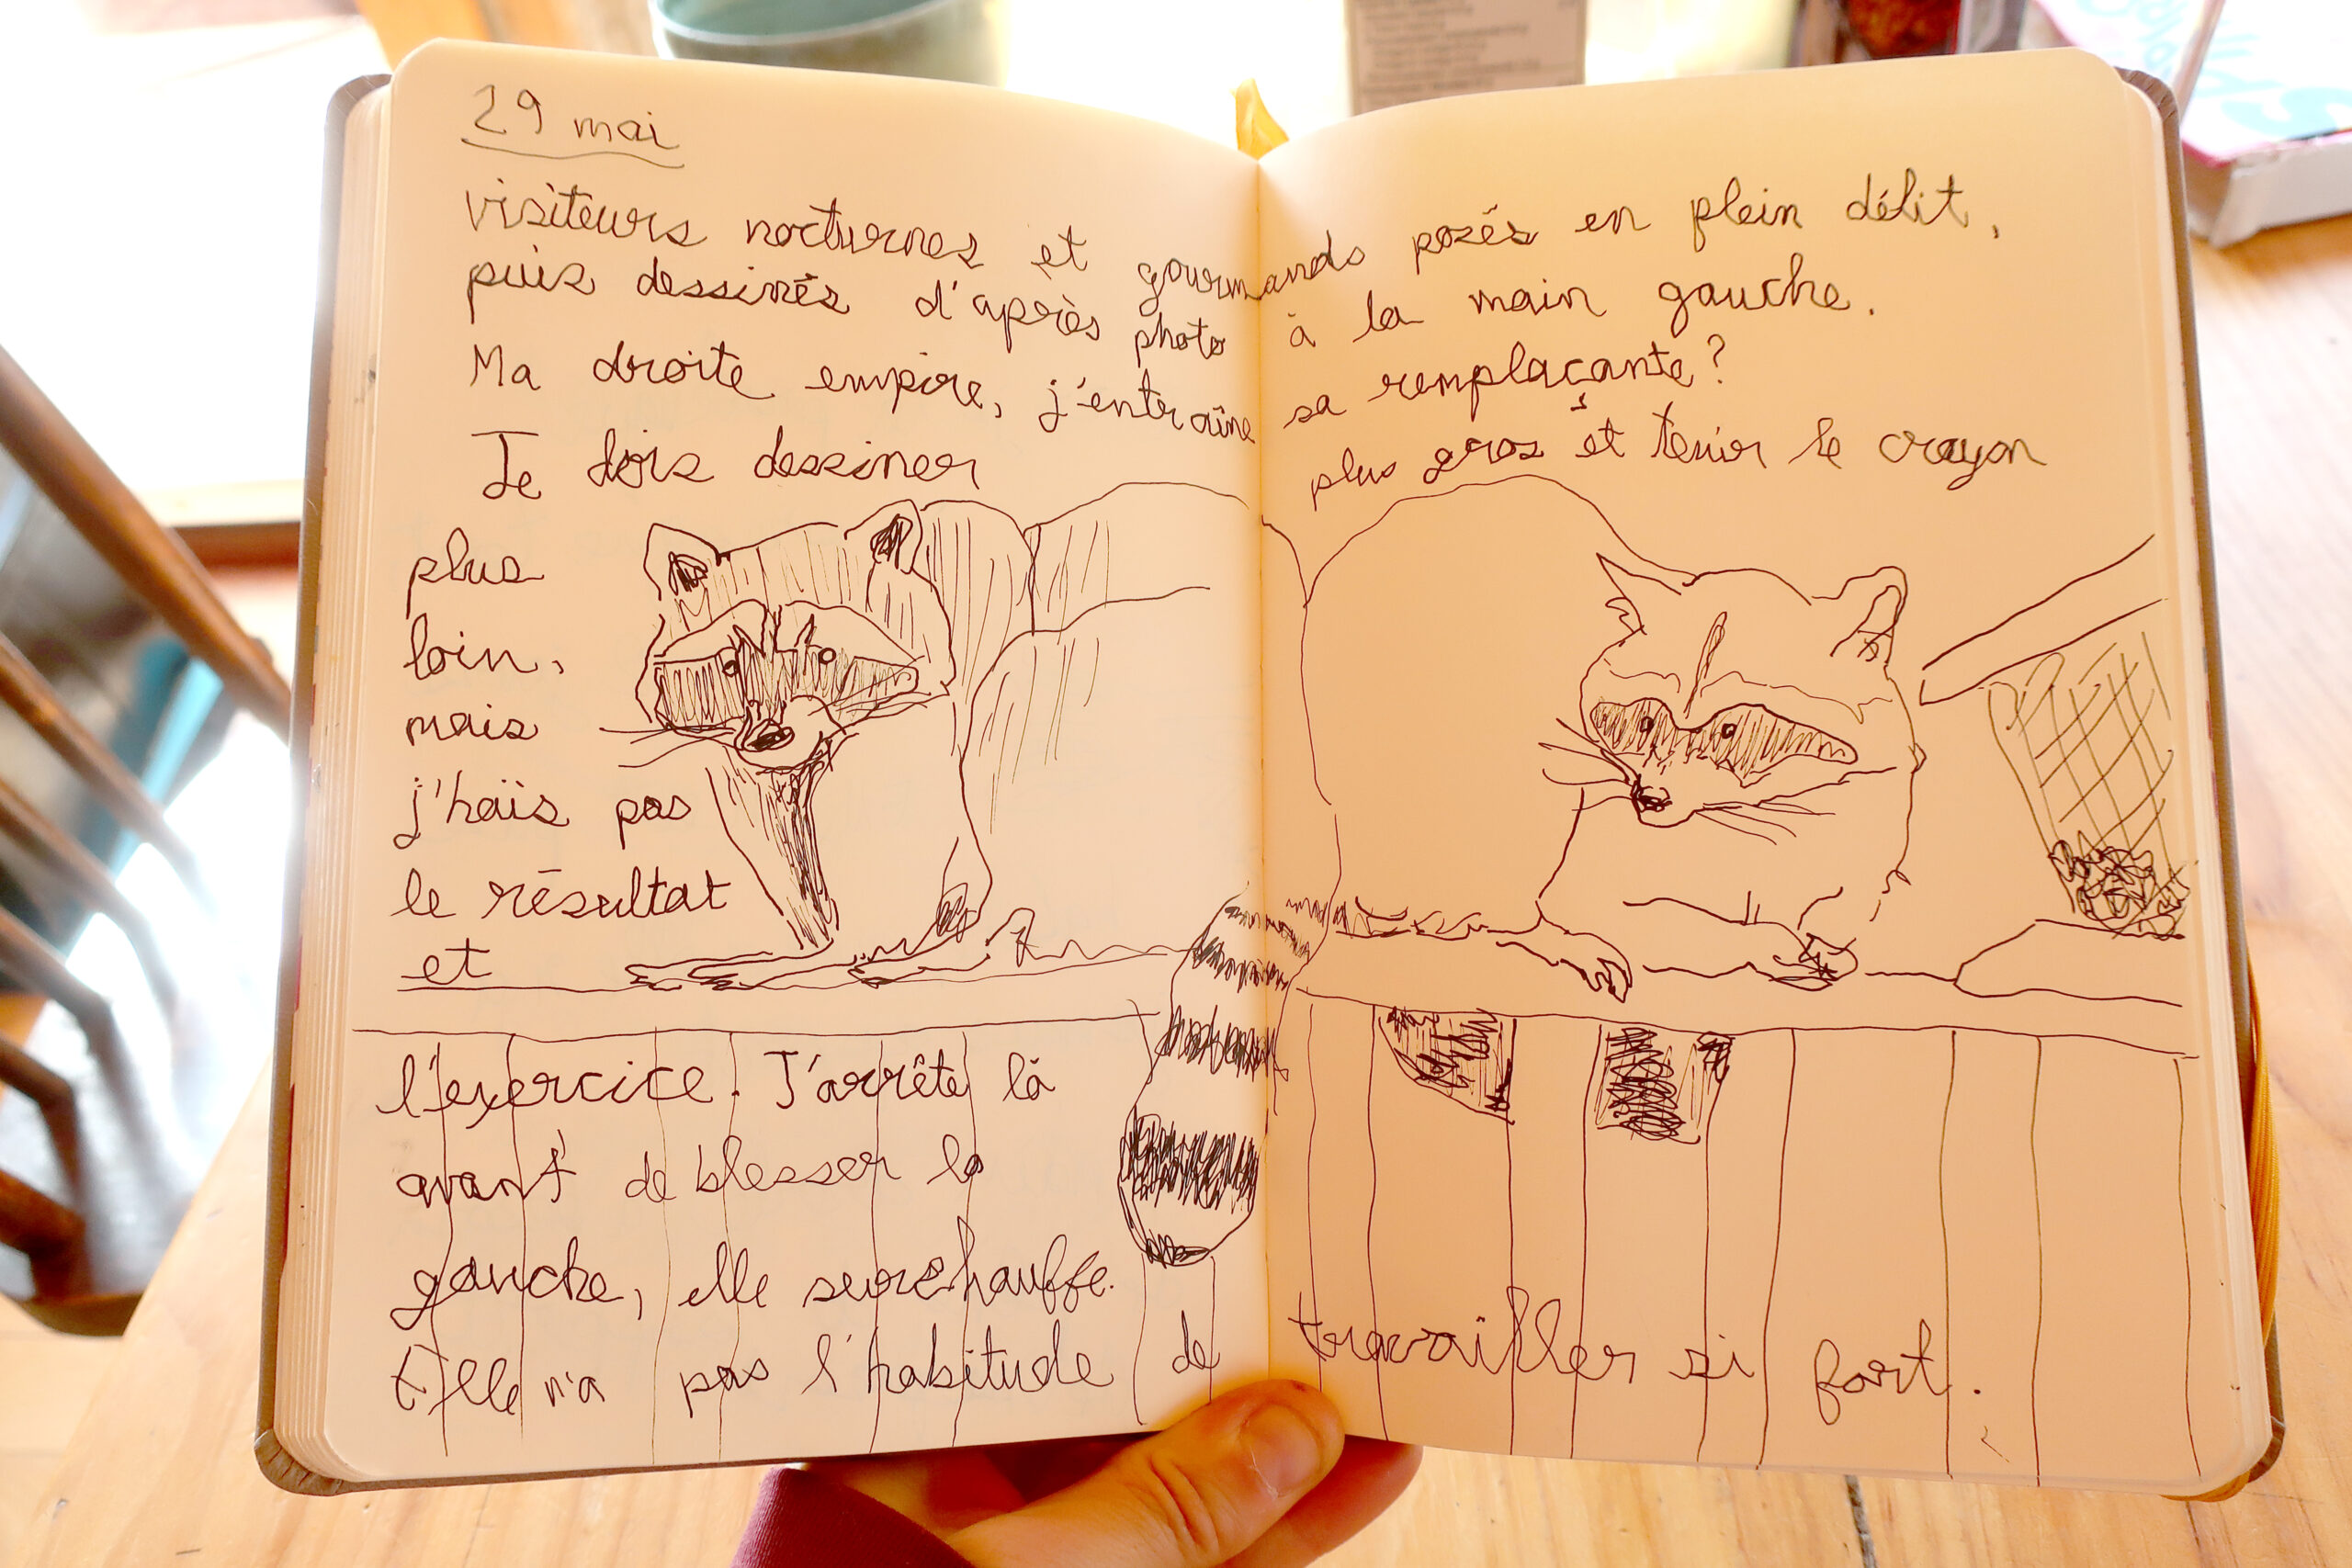 29 mai
visiteurs nocturnes et gourmands posés en plein délit,
puis dessinés d'après photo à la main gauche.
Ma droite empire, j'entraîne sa remplaçante?
Je dois dessiner plus gros et tenir le crayon
plus
loin,
mais
j'haïs pas
le résultat
et
l'exercice. J'arrête là
avant de blesser la
gauche, elle surchauffe.
Elle n'a pas l'habitude de travailler si fort.